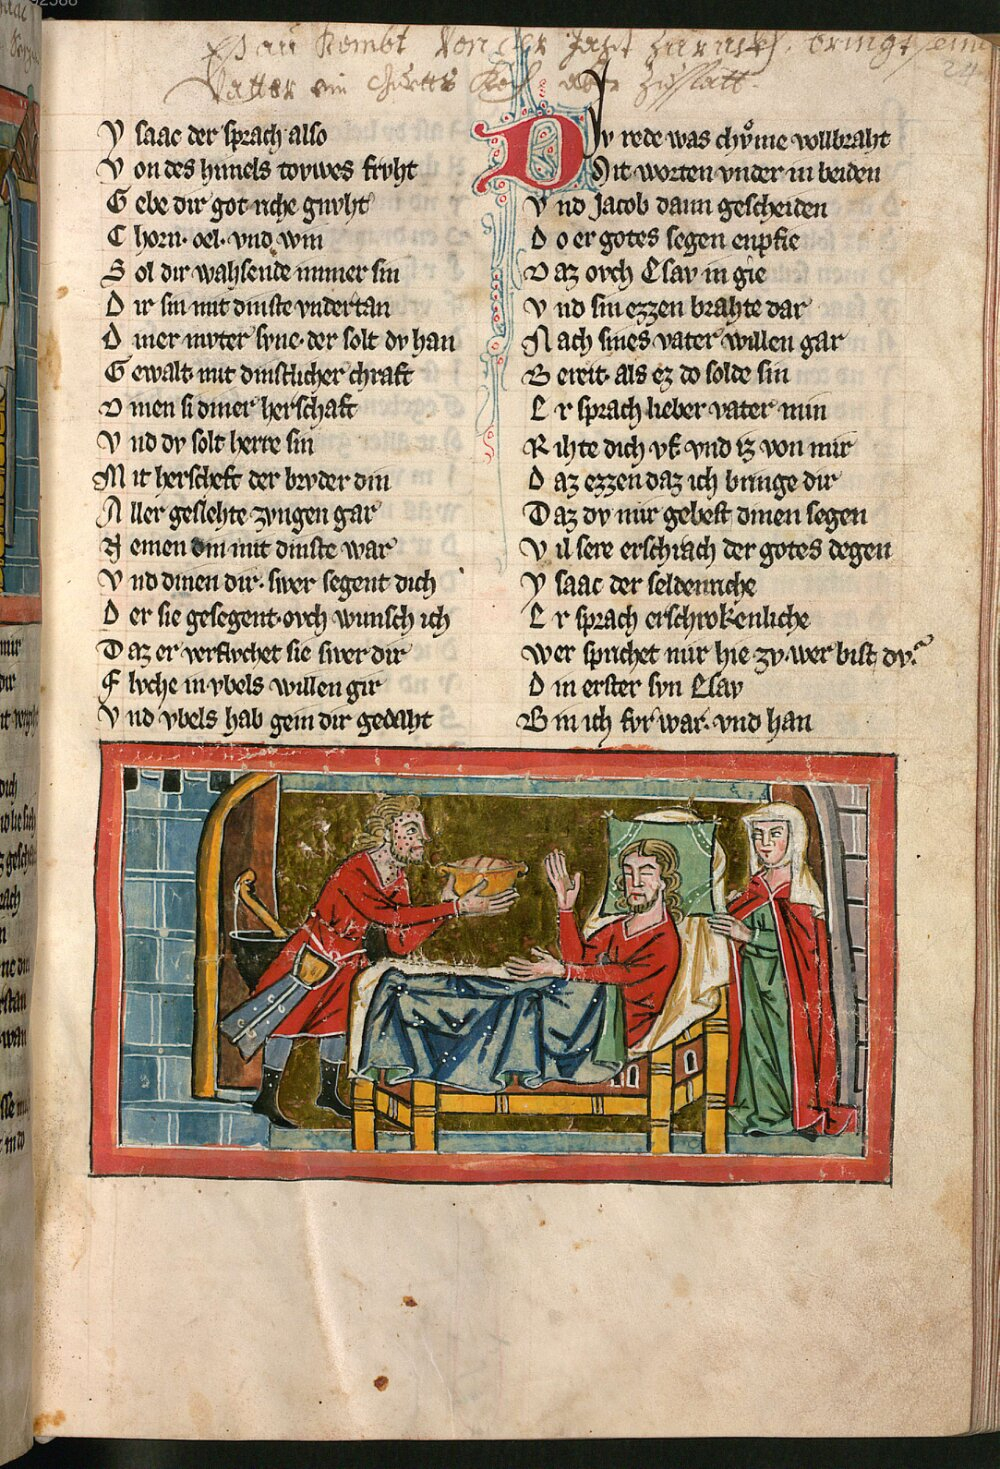 Esau kombt von der Jagt zuruckh. bringt seim
Vatter ein
Ysaac der sprach also
Von des himels tovwes frvht
Gebe dir got riche gnvht
Chorn. oel. vnd win
Sol dir wahsende immer sin
Dir sin mit dinste vndertan
Diner mvter svne. der solt dv han
Gewalt mit dinstlicher chraft
Dinen si diner herschaft
Vnd dv solt herre sin
Mit herscheft der brvder din
Aller geslehte zvngen gar
Nemen din mit dinste war
Vnd dinen dir. swer segent dich
Der sie gesegent. ovch wunsch ich
Daz er verflvchet sie swer dir
Flvche in vbels willen gir
Vnd vbels hab gein dir gedaht
Div rede was chvme vollbraht
Mit worten vnder in beiden
Vnd Jacob dann gescheiden
Do er gotes segen enpfie
Daz ovch Esav in gie
Vnd sin ezzen brahte dar
Nach sines vater willen gar
Bereit. als ez do solde sin
Er sprach lieber vater min
Rihte dich vf. vnd iz von mir
Daz ezzen daz ich bringe dir
Daz dv mir gebest dinen segen
Vil sere erschrach der gotes degen
Ysaac der seldenriche
Er sprach erschrokenliche
Wer sprichet mir hie zv. wer bist dv?
Din erster svn Esav
Bin ich fvr war. vnd han